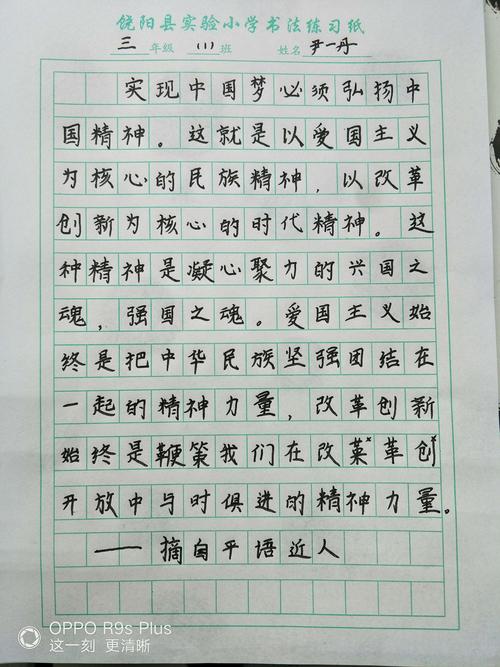 饶阳县实验小学书法练习纸
三年级(1)班 姓名尹一丹
实现中国梦必须弘扬中
国精神。这就是以爱国主义
为核心的民族精神，以改革
创新为核心的时代精神。这
种精神是凝心聚力的兴国之
魂，强国之魂。爱国主义始
终是把中华民族坚强团结在
一起的精神力量，改革创新
始终是鞭策我们在改革革创
开放中与时俱进的精神力量。
——摘自平语近人
OPPO R9s Plus
这一刻 更清晰